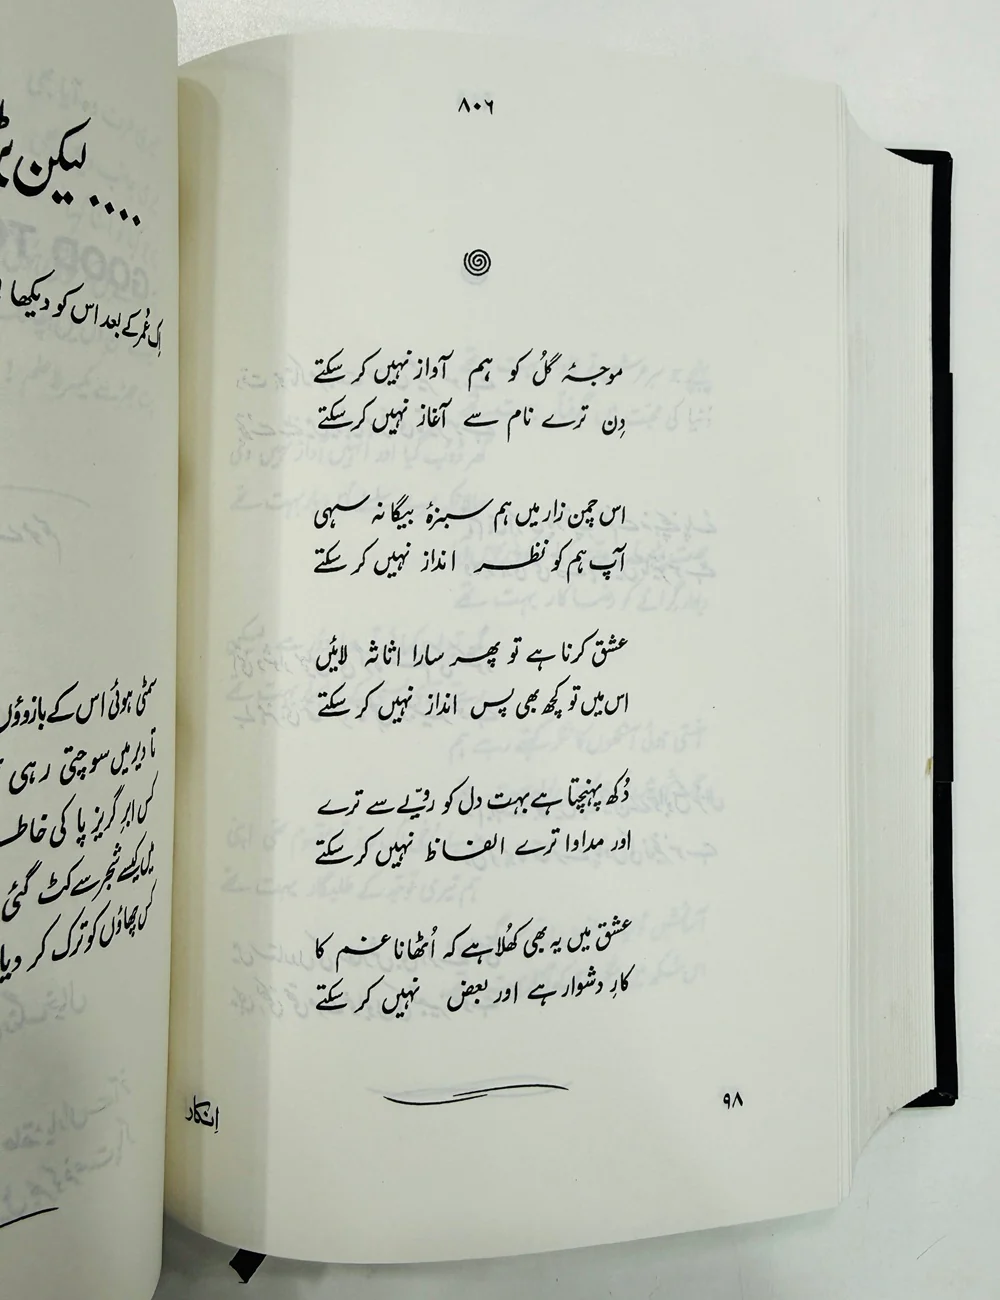 ۸۰۶
موجۂ گُل کو ہم آواز نہیں کر سکتے
دِن ترے نام سے آغاز نہیں کر سکتے
اس چمن زار میں ہم سبزۂ بیگانہ سہی
آپ ہم کو نظر انداز نہیں کر سکتے
عشق کرنا ہے تو پھر سارا اثاثہ لائیں
اس میں تو کچھ بھی پس انداز نہیں کر سکتے
دُکھ پہنچتا ہے بہت دل کو رویّے سے ترے
اور مداوا ترے الفاظ نہیں کر سکتے
عشق میں یہ بھی کُھلا ہے کہ اُٹھانا غم کا
کارِ دشوار ہے اور بعض نہیں کر سکتے
۹۸
اِنکار
.... لیکن
اِک عُمر کے بعد اس کو دیکھا
سمٹی ہوئی اس کے بازوؤں
تا دیر میں سوچتی رہی
کس ابرِ گریز پا کی خاطر
میں کیسے شجر سے کٹ گئی
کس چھاؤں کو ترک کر دیا